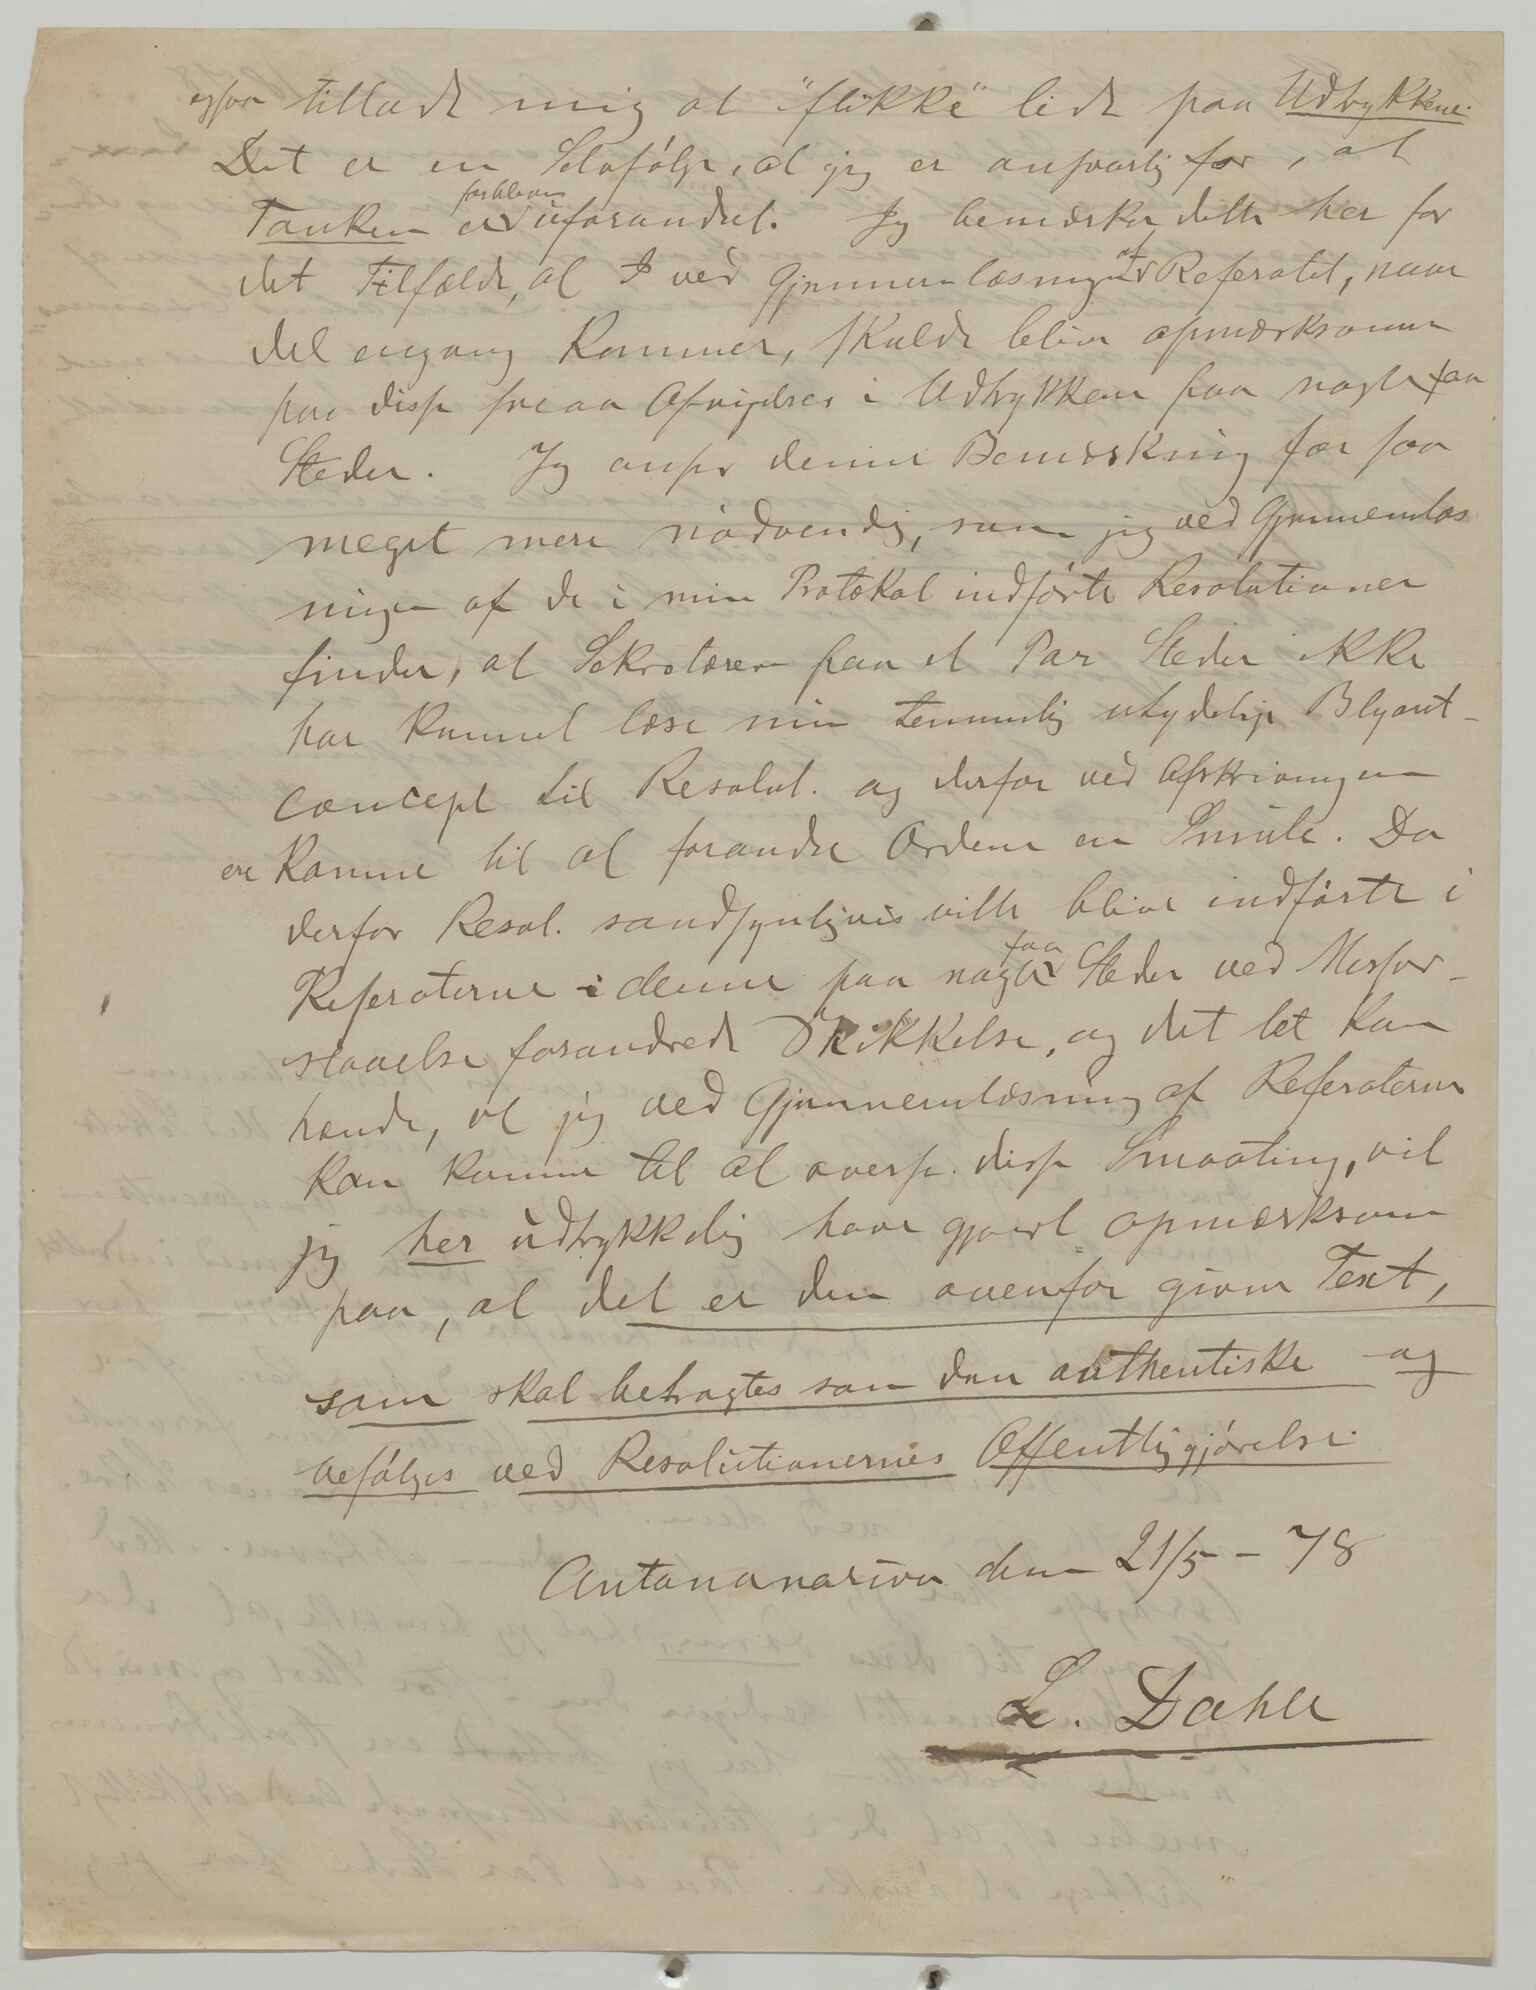 ogsaa tilladt mig at "flikke" lidt paa Udtrykkene.
Det er en Selvfølge, at jeg er ansvarlig for, at
Tanken er forbleven uforandret. Jeg bemærker dette her for
det Tilfælde, at I ved Gjennemlæsningen af Referatet, naar
det engang kommer, skulde blive opmærksomme
paa disse smaa Afvigelser i Udtrykkene paa nogle faa
Steder. Jeg anser denne Bemærkning for saa
meget mere nødvendig, som jeg ved Gjennemlæs
ningen af de i min Protokol indførte Resolutioner
finder, at Sekretæren paa et Par Steder ikke
har kunnet læse min temmelig utydelige Blyant-
concept til Resolut. og derfor ved Afskrivningen
er komme til at forandre Ordene en Smule. Da
derfor Resol. sandsynligvis ville blive indførte i
Referaterne i denne paa nogle faa Steder ved Misfor-
staaelse forandrede Skikkelse, og det let kan
hænde, at jeg ved Gjennemlæsning af Referaterne
kan komme til at overse disse Smaating, vil
jeg her udtrykkelig have gjort opmærksom
paa, at det er den ovenfor givne Text,
som skal betragtes som den authentiske og
befølges ved Resolutionernes Offentliggjørelse.
Antananarivo den 21/5 - 78
L. Dahle